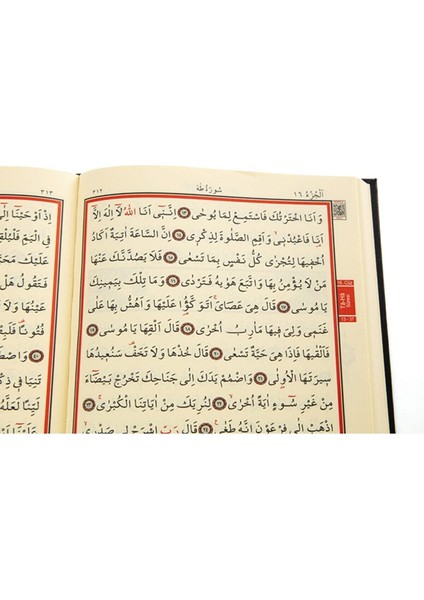 اَلْجُزْءُ ١٦
سُورَةُ طٰهٰ
٣١٢
وَاَنَا اخْتَرْتُكَ فَاسْتَمِعْ لِمَا يُوحٰى ﴿١٣﴾ اِنَّنٖٓي اَنَا اللّٰهُ لَٓا اِلٰهَ اِلَّٓا
اَنَا۬ فَاعْبُدْنٖيۙ وَاَقِمِ الصَّلٰوةَ لِذِكْرٖي ﴿١٤﴾ اِنَّ السَّاعَةَ اٰتِيَةٌ اَكَادُ
اُخْفٖيهَا لِتُجْزٰى كُلُّ نَفْسٍ بِمَا تَسْعٰى ﴿١٥﴾ فَلَا يَصُدَّنَّكَ عَنْهَا
مَنْ لَا يُؤْمِنُ بِهَا وَاتَّبَعَ هَوٰيهُ فَتَرْدٰى ﴿١٦﴾ وَمَا تِلْكَ بِيَمٖينِكَ
يَا مُوسٰى ﴿١٧﴾ قَالَ هِيَ عَصَايَۚ اَتَوَكَّؤُ۬ا عَلَيْهَا وَاَهُشُّ بِهَا عَلٰى
غَنَمٖي وَلِيَ فٖيهَا مَاٰرِبُ اُخْرٰى ﴿١٨﴾ قَالَ اَلْقِهَا يَا مُوسٰى ﴿١٩﴾
فَاَلْقٰيهَا فَاِذَا هِيَ حَيَّةٌ تَسْعٰى ﴿٢٠﴾ قَالَ خُذْهَا وَلَا تَخَفْ۠ سَنُعٖيدُهَا
سٖيرَتَهَا الْاُو۫لٰى ﴿٢١﴾ وَاضْمُمْ يَدَكَ اِلٰى جَنَاحِكَ تَخْرُجْ بَيْضَٓاءَ
مِنْ غَيْرِ سُٓوءٍ اٰيَةً اُخْرٰىۙ ﴿٢٢﴾ لِنُرِيَكَ مِنْ اٰيَاتِنَا الْكُبْرٰىۚ ﴿٢٣﴾
اِذْهَبْ اِلٰى فِرْعَوْنَ اِنَّهُ طَغٰى ﴿٢٤﴾ قَالَ رَبِّ اشْرَحْ لٖي صَدْرٖيۙ
Tâ-Hâ
Suresi
٣١٣
اِذْ اَوْحَيْنَٓا اِلٰٓى
فِي الْيَمِّ فَلْيُلْقِهِ
عَلَيْكَ مَحَ
فَتَقُولُ هَلْ
عَيْنُهَا وَلَا
فُتُونًا۠ فَلَبِثْ
﴿٤٠﴾ وَاصْطَ
تَنِيَا فٖي ذِكْ
لَيِّنًا لَعَلَّهُ
عَلَيْنَٓا